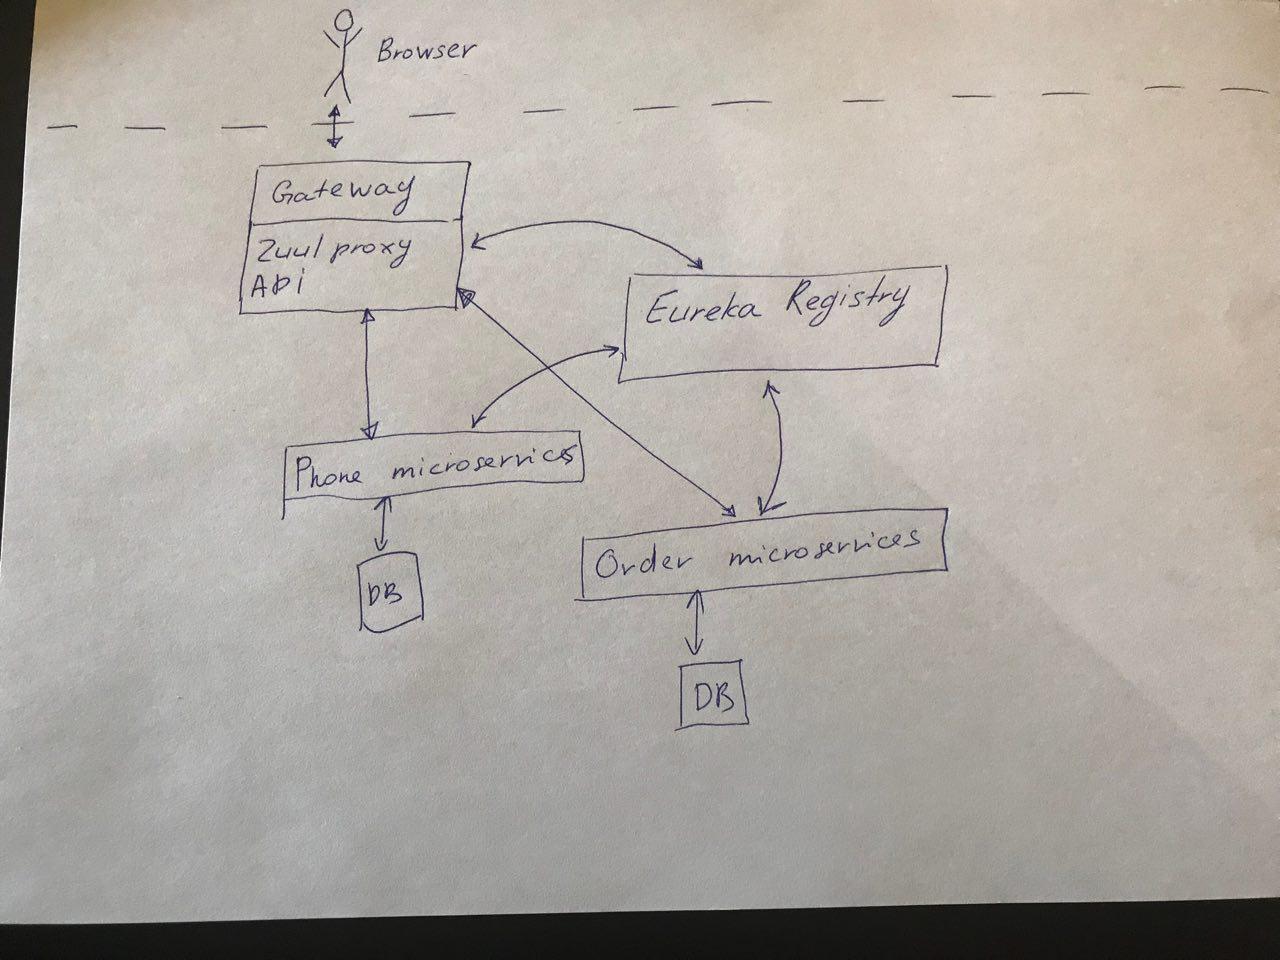 Browser
Gateway
Zuul proxy
Api
Eureka Registry
Phone microservices
Order microservices
DB
DB